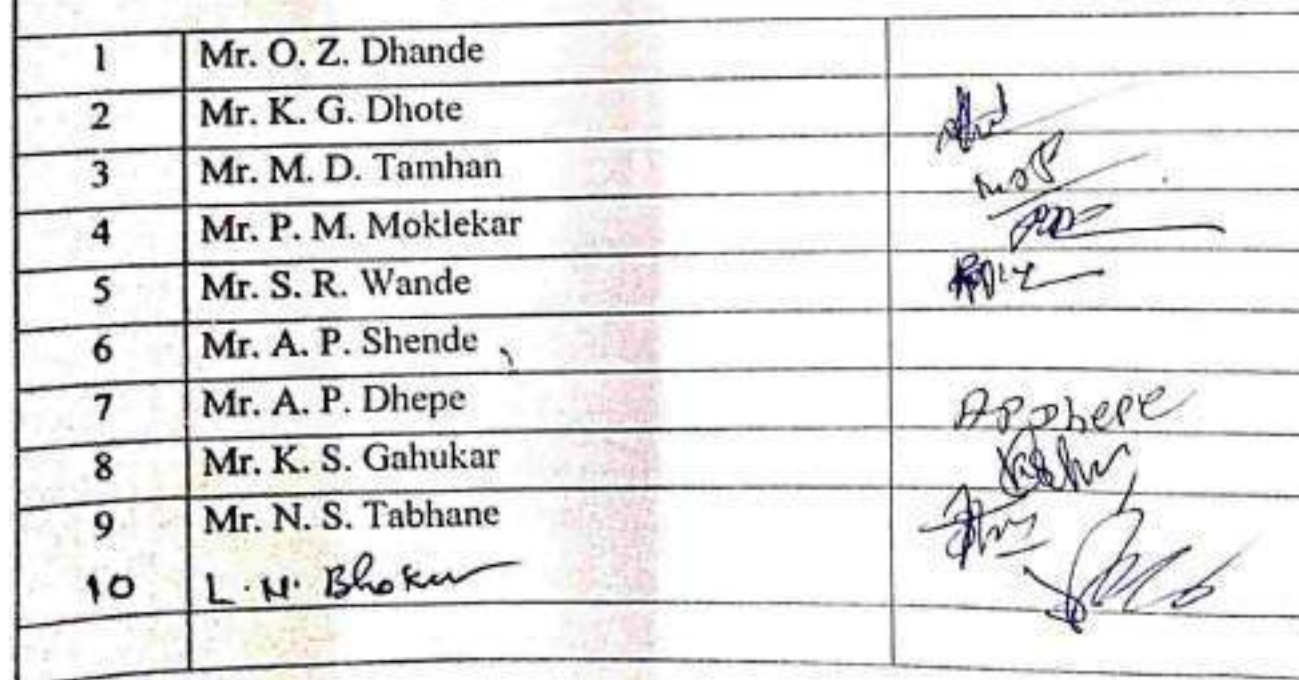 1 Mr. O. Z. Dhande
2 Mr. K. G. Dhote
3 Mr. M. D. Tamhan
4 Mr. P. M. Moklekar
5 Mr. S. R. Wande
6 Mr. A. P. Shende
7 Mr. A. P. Dhepe APDhepe
8 Mr. K. S. Gahukar
9 Mr. N. S. Tabhane
10 L. N.